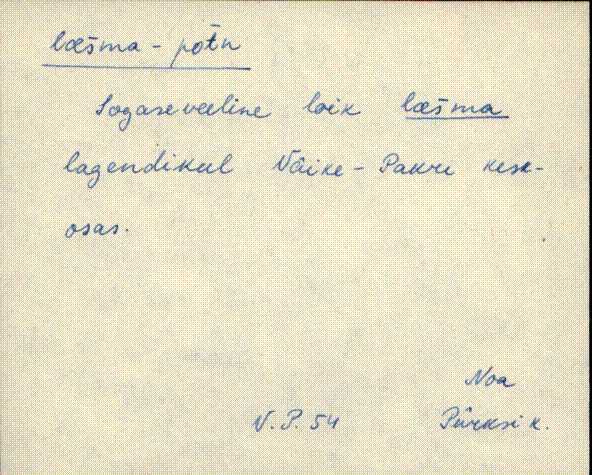 læšma - pōtn
Sogaseveeline loik læšma
lagendikul Väike-Pakri kesk-
osas.
Noa
V. P. 54 Pürksi k.